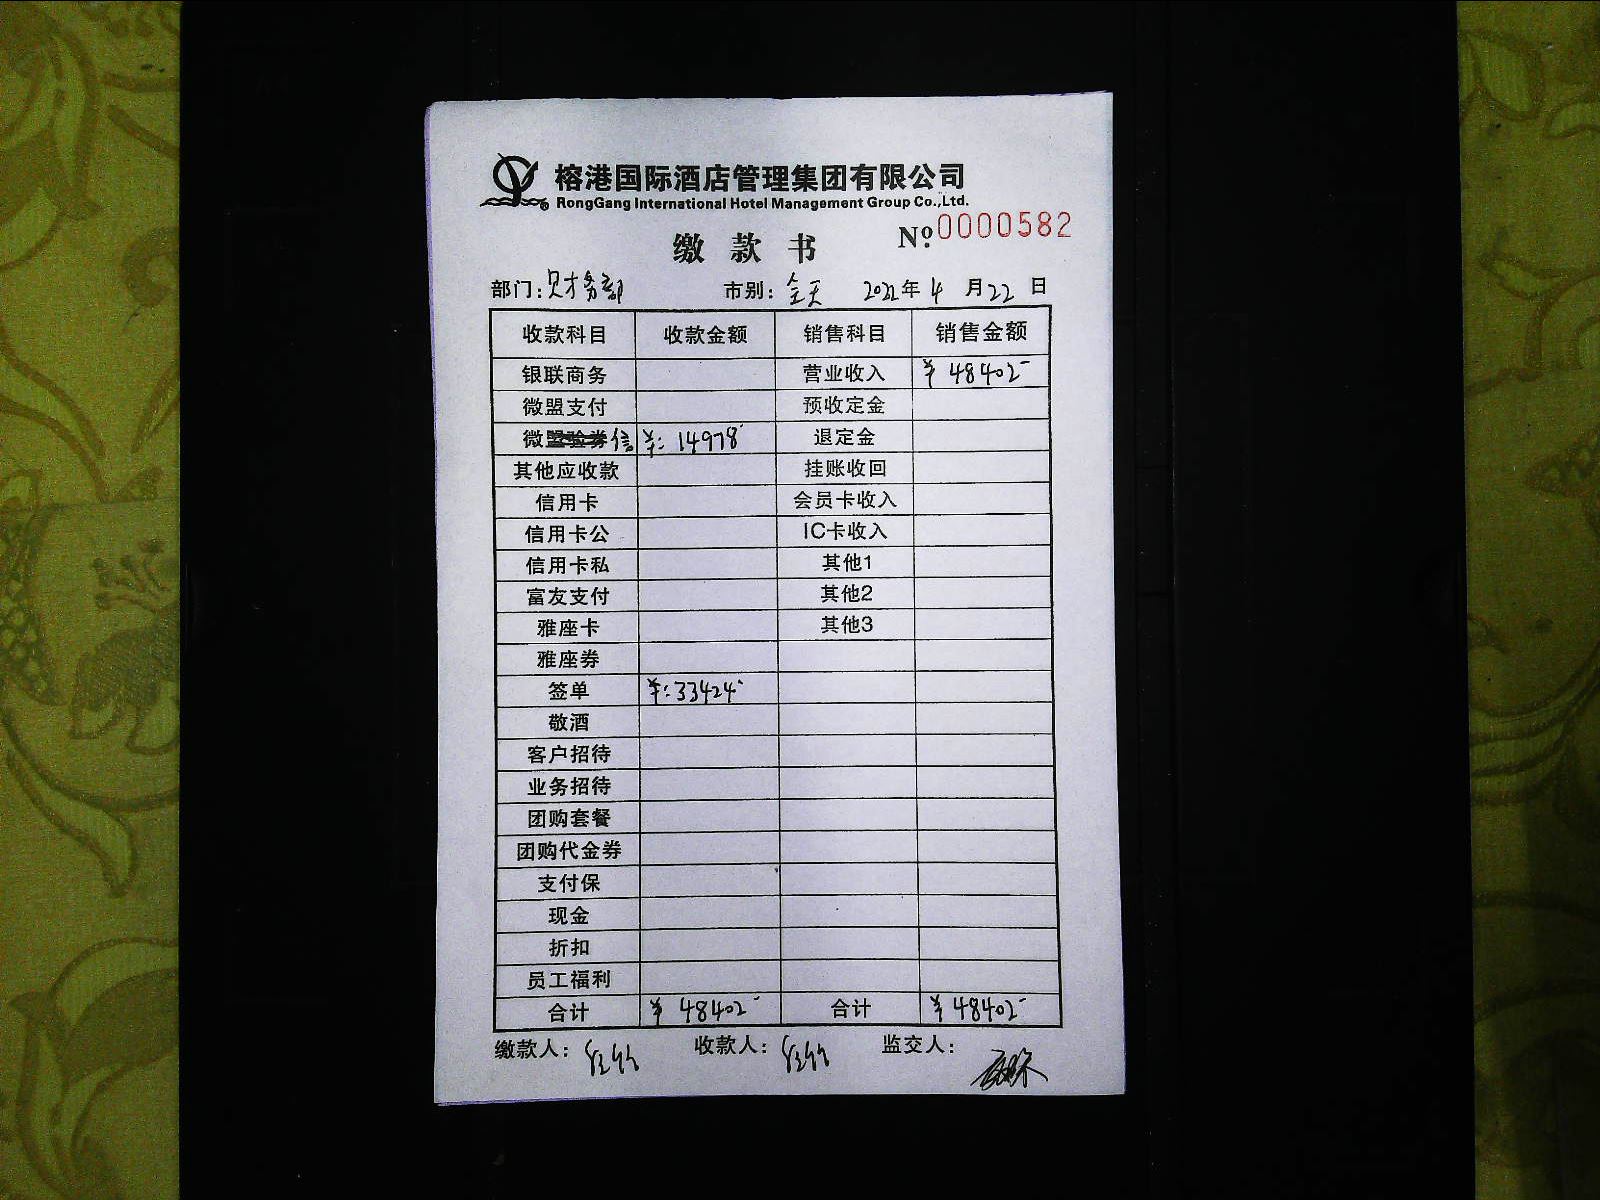 榕港国际酒店管理集团有限公司
RongGang International Hotel Management Group Co.,Ltd.
缴款书 №0000582
部门:财务部 市别:全天 2022年4月22日
收款科目 收款金额 销售科目 销售金额
银联商务 营业收入 ¥48402-
微盟支付 预收定金
微盟验券信 ¥:14978 退定金
其他应收款 挂账收回
信用卡 会员卡收入
信用卡公 IC卡收入
信用卡私 其他1
富友支付 其他2
雅座卡 其他3
雅座券
签单 ¥:33424
敬酒
客户招待
业务招待
团购套餐
团购代金券
支付保
现金
折扣
员工福利
合计 ¥48402- 合计 ¥48402-
缴款人: 收款人: 监交人: